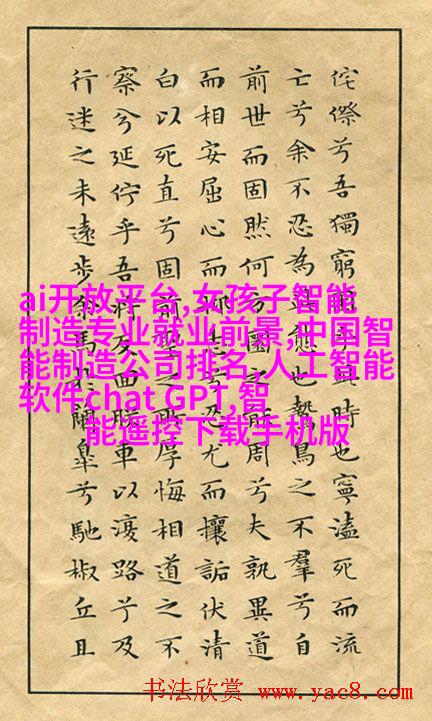 侘傺兮吾獨窮困乎此時也寧溘死而流
亡兮余不忍為此態也鷙鳥之不羣兮自
前世而固然何方圜之能周兮夫孰異道
而相安屈心而抑志兮忍尤而攘詬伏清
白以死直兮固前聖之所厚悔相道之不
察兮延佇乎吾將反回朕車以復路兮及
行迷之未遠步余馬於蘭皋兮馳椒丘且
ai开放平台,女孩子智能
制造专业就业前景,中国智
能制造公司排名,人工智能
软件chat GPT,智
能遥控下载手机版
书法欣赏 www.yac8.com